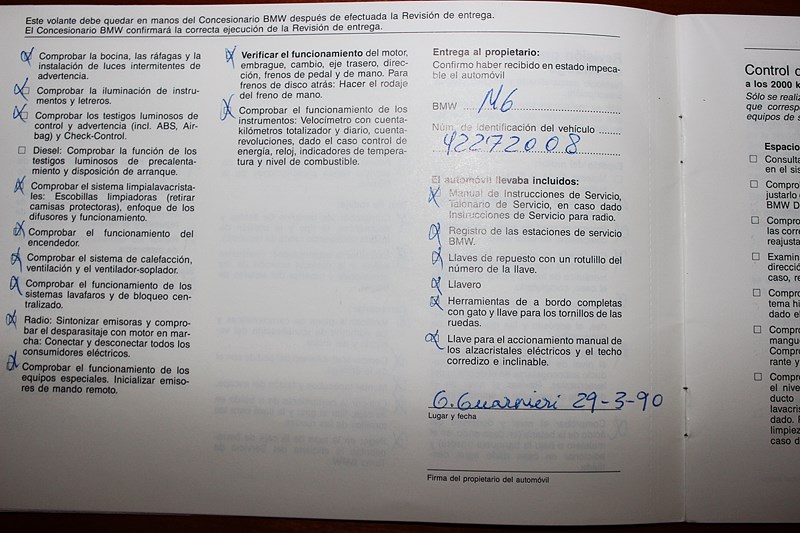 Este volante debe quedar en manos del Concesionario BMW después de efectuada la Revisión de entrega.
El Concesionario BMW confirmará la correcta ejecución de la Revisión de entrega.
Comprobar la bocina, las ráfagas y la
instalación de luces intermitentes de
advertencia.
Comprobar la iluminación de instru-
mentos y letreros.
Comprobar los testigos luminosos de
control y advertencia (incl. ABS, Air-
bag) y Check-Control.
Diesel: Comprobar la función de los
testigos luminosos de precalenta-
miento y disposición de arranque.
Comprobar el sistema limpialavacrista-
les: Escobillas limpiadoras (retirar
camisas protectoras), enfoque de los
difusores y funcionamiento.
Comprobar el funcionamiento del
encendedor.
Comprobar el sistema de calefacción,
ventilación y el ventilador-soplador.
Comprobar el funcionamiento de los
sistemas lavafaros y de bloqueo cen-
tralizado.
Radio: Sintonizar emisoras y compro-
bar el desparasitaje con motor en mar-
cha: Conectar y desconectar todos los
consumidores eléctricos.
Comprobar el funcionamiento de los
equipos especiales. Inicializar emiso-
res de mando remoto.
Verificar el funcionamiento del motor,
embrague, cambio, eje trasero, direc-
ción, frenos de pedal y de mano. Para
frenos de disco atrás: Hacer el rodaje
del freno de mano.
Comprobar el funcionamiento de los
instrumentos: Velocímetro con cuenta-
kilómetros totalizador y diario, cuenta-
revoluciones, dado el caso control de
energía, reloj, indicadores de tempera-
tura y nivel de combustible.
Entrega al propietario:
Confirmo haber recibido en estado impeca-
ble el automóvil
BMW M6
Núm. de identificación del vehículo
42272008
El automóvil llevaba incluidos:
Manual de Instrucciones de Servicio,
Talonario de Servicio, en caso dado
Instrucciones de Servicio para radio.
Registro de las estaciones de servicio
BMW.
Llaves de repuesto con un rotulillo del
número de la llave.
Llavero
Herramientas de a bordo completas
con gato y llave para los tornillos de las
ruedas.
Llave para el accionamiento manual de
los alzacristales eléctricos y el techo
corredizo e inclinable.
G. Guarnieri 29-3-90
Lugar y fecha
Firma del propietario del automóvil
Control
a los 2000
Sólo se
que
equipos de
Consulta
en el
justarlo
BMW
las
Examin
caso,
tema
dado el
rante y
el
dado.
caso